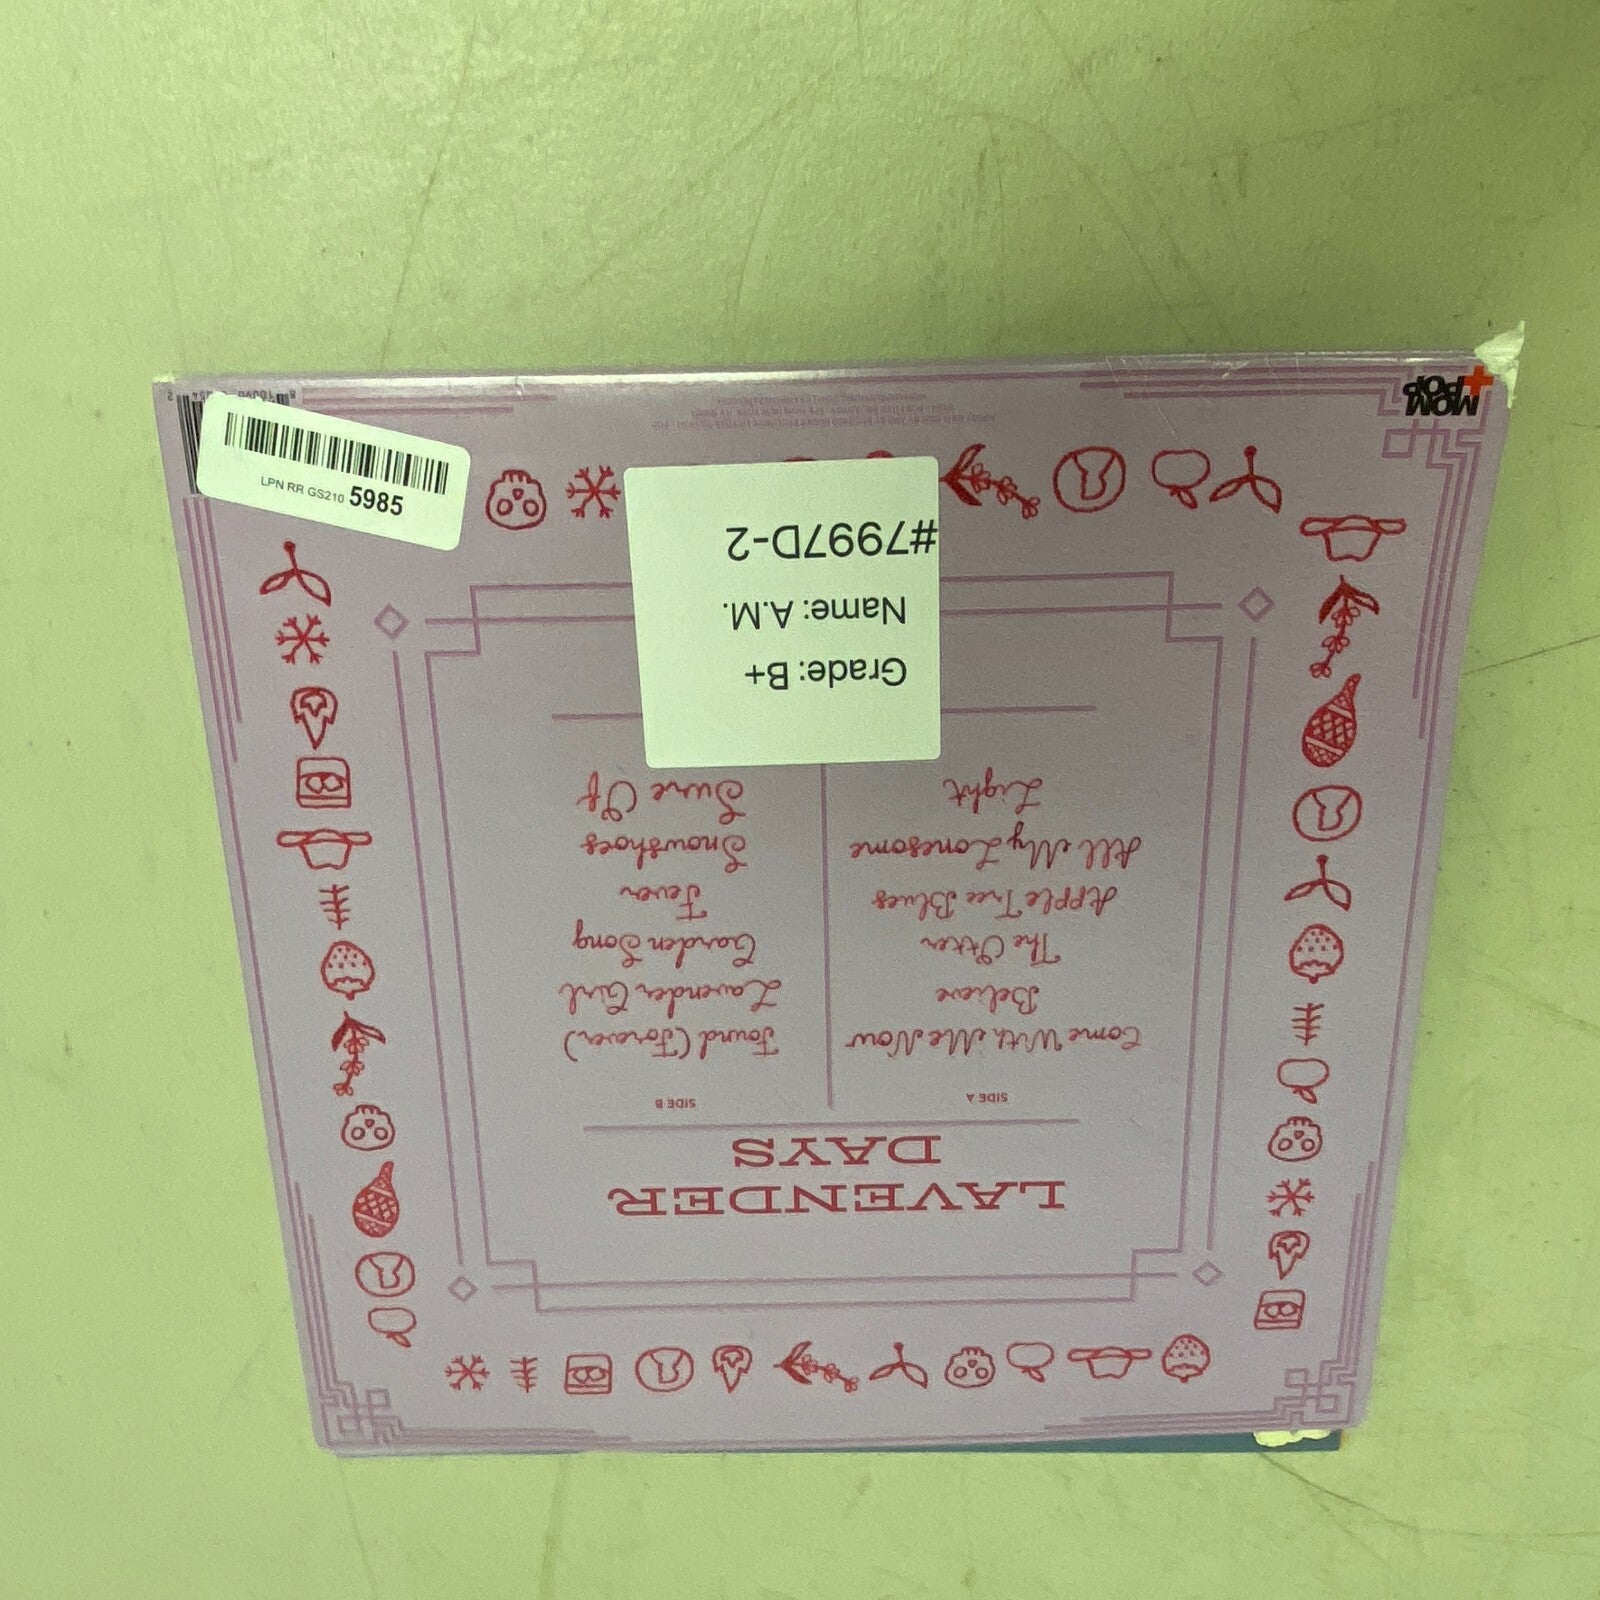 LAVENDER
DAYS
SIDE A
Come With Me Now
Believe
The Otter
Apple Tree Blues
All My Lonesome
Light
SIDE B
Found (Forever)
Lavender Girl
Garden Song
Fever
Snowshoes
Sure Of
Grade: B+
Name: A.M.
#7997D-2
LPN RR GS210 5985
MOM
+POP